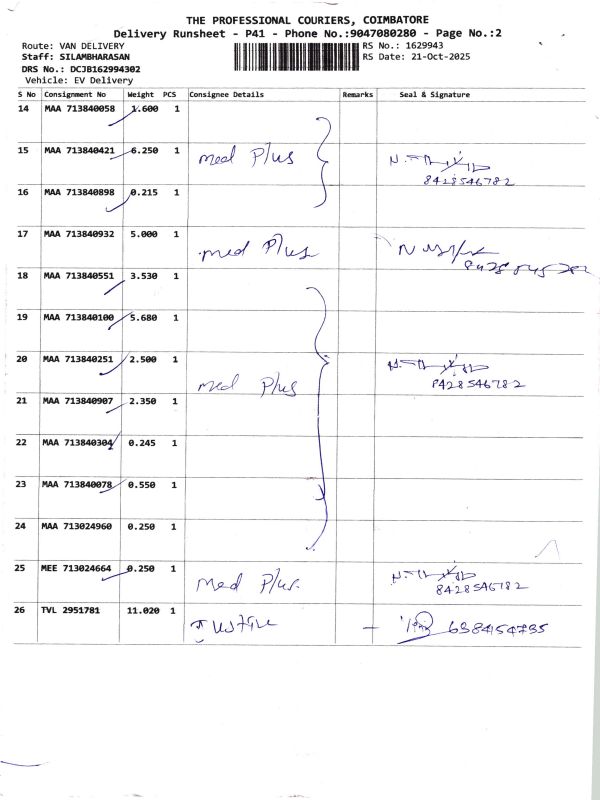 THE PROFESSIONAL COURIERS, COIMBATORE
Delivery Runsheet - P41 - Phone No.:9047080280 - Page No.:2
Route: VAN DELIVERY
RS No.: 1629943
Staff: SILAMBHARASAN
RS Date: 21-Oct-2025
DRS No.: DCJB162994302
Vehicle: EV Delivery
S No Consignment No Weight PCS Consignee Details Remarks Seal & Signature
14 MAA 713840058 1.600 1
15 MAA 713840421 6.250 1 med Plus
8428546782
16 MAA 713840898 0.215 1
17 MAA 713840932 5.000 1 med Plus
18 MAA 713840551 3.530 1
19 MAA 713840100 5.680 1
20 MAA 713840251 2.500 1 med Plus
8428546782
21 MAA 713840907 2.350 1
22 MAA 713840304 0.245 1
23 MAA 713840078 0.550 1
24 MAA 713024960 0.250 1
25 MEE 713024664 0.250 1 med Plus
8428546782
26 TVL 2951781 11.020 1